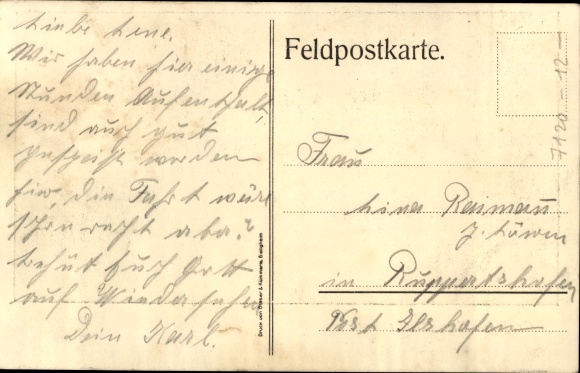 Liebe Lene.
Wir haben hier einige
Stunden Aufenthalt,
sind auch gut
gespeist worden
hier, die Fahrt wäre
schön recht aba.?
behüt Euch Gott
auf Wiedersehen
Dein Karl.
Feldpostkarte.
Frau
Lina
z. Löwen
in Ruppertshofen
Post Ilshofen
7120-12-